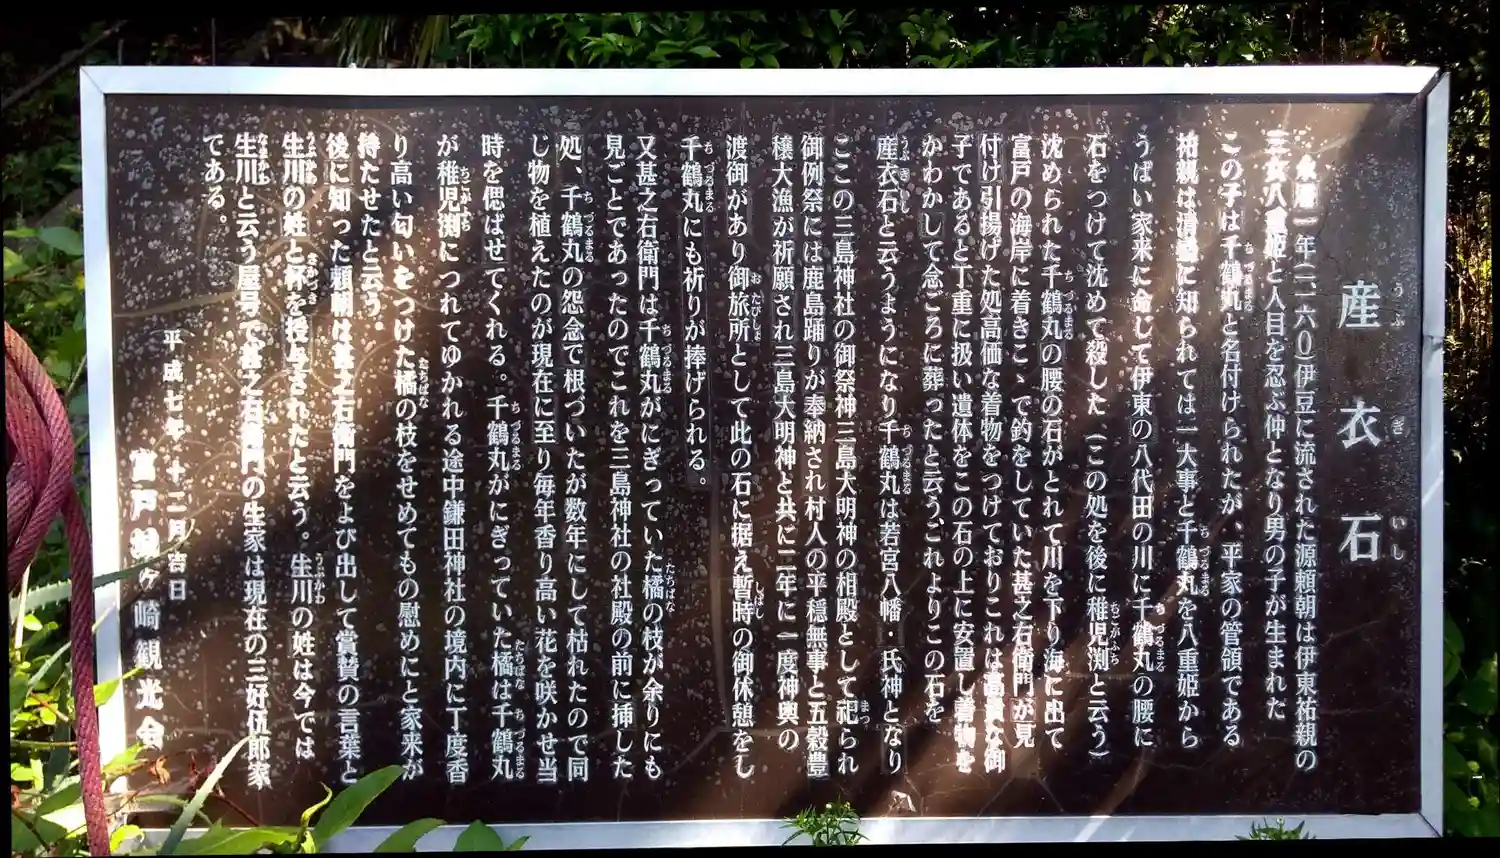 産衣石
うぶぎいし
永暦一年(一、一六〇)伊豆に流された源頼朝は伊東祐親の
三女八重姫と人目を忍ぶ仲となり男の子が生まれた
この子は千鶴丸と名付けられたが、平家の管領である
祐親は清盛に知られては一大事と千鶴丸を八重姫から
うばい家来に命じて伊東の八代田の川に千鶴丸の腰に
石をつけて沈めて殺した(この処を後に稚児渕と云う)
沈められた千鶴丸の腰の石がとれて川を下り海に出て
富戸の海岸に着きこゝで釣をしていた甚之右衛門が見
付け引揚げた処高価な着物をつけておりこれは高貴な御
子であると丁重に扱い遺体をこの石の上に安置し着物を
かわかして念ごろに葬ったと云う、これよりこの石を
産衣石と云うようになり千鶴丸は若宮八幡・氏神となり
ここの三島神社の御祭神三島大明神の相殿として祀られ
御例祭には鹿島踊りが奉納され村人の平穏無事と五穀豊
穣大漁が祈願され三島大明神と共に二年に一度神輿の
渡御があり御旅所として此の石に据え暫時の御休憩をし
千鶴丸にも祈りが捧げられる。
又甚之右衛門は千鶴丸がにぎっていた橘の枝が余りにも
見ごとであったのでこれを三島神社の社殿の前に挿した
処、千鶴丸の怨念で根づいたが数年にして枯れたので同
じ物を植えたのが現在に至り毎年香り高い花を咲かせ当
時を偲ばせてくれる。千鶴丸がにぎっていた橘は千鶴丸
が稚児渕につれてゆかれる途中鎌田神社の境内に丁度香
り高い匂いをつけた橘の枝をせめてもの慰めにと家来が
持たせたと云う。
後に知った頼朝は甚之右衛門をよび出して賞賛の言葉と
生川の姓と杯を授与されたと云う。生川の姓は今では
生川と云う屋号で甚之右衛門の生家は現在の三好伍郎家
である。
平成七年十二月吉日
富戸ケ崎観光会